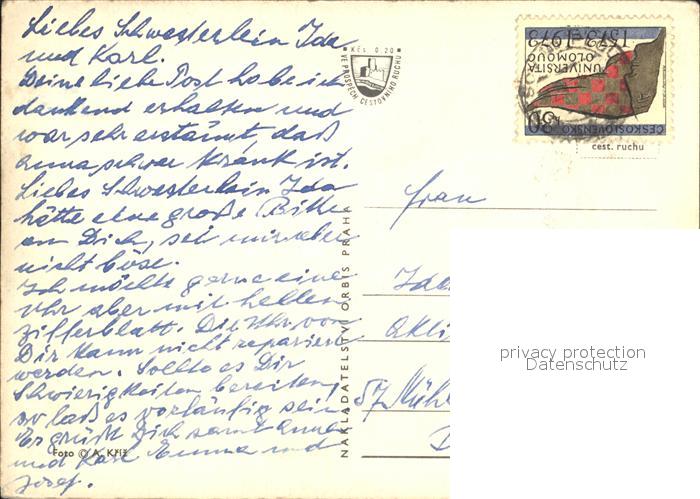 Liebes Schwesterlein Ida
und Karl.
Deine liebe Post habe ich
dankend erhalten und
war sehr erstaunt, daß
Anna schwer krank ist.
Liebes Schwesterlein Ida
hätte eine große Bitte
an Dich, sei mir aber
nicht böse.
Ich möchte gerne eine
Uhr aber mit hellen
Zifferblatt. Die Uhr von
Dir kann nicht repariert
werden. Sollte es Dir
Schwierigkeiten bereiten,
so laß es vorläufig sein.
Es grüßt Dich samt Anna
und Karl Emma und
Josef.
Foto © A. Kříž
NAKLADATELSTVÍ ORBIS PRAHA
Kčs 0.20
VE PROSPĚCH CESTOVNÍHO RUCHU
1573-1973
UNIVERSITA
OLOMOUC
30
ČESKOSLOVENSKO
cest. ruchu
Frau
Ida
57 Mühl
D
privacy protection
Datenschutz